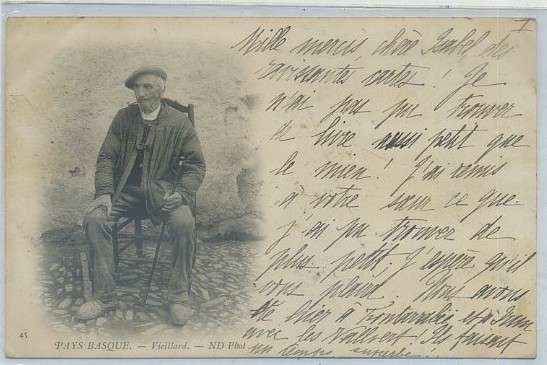 Mille mercis chère Isabel des
ravissantes cartes ! Je
n'ai pas pu trouver
de livre aussi petit que
le mien ! J'ai remis
à votre sœur ce que
j'ai pu trouver de
plus petit, j'espère qu'il
vous plaira. Nous avons
été hier à Fontarabie et à Irun
avec les Ils faisait
un temps
45
PAYS BASQUE. — Vieillard. — ND Phot